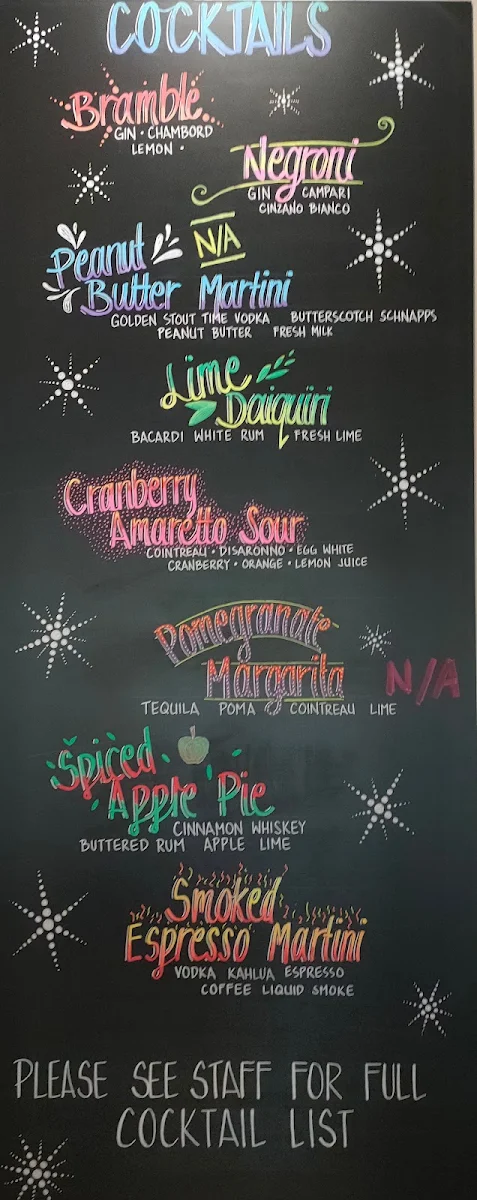 COCKTAILS
Bramble
GIN • CHAMBORD
LEMON •
Negroni
GIN CAMPARI
CINZANO BIANCO
N/A
Peanut
Butter Martini
GOLDEN STOUT TIME VODKA BUTTERSCOTCH SCHNAPPS
PEANUT BUTTER FRESH MILK
Lime
Daiquiri
BACARDI WHITE RUM FRESH LIME
Cranberry
Amaretto Sour
COINTREAU • DISARONNO • EGG WHITE
CRANBERRY • ORANGE • LEMON JUICE
Pomegranate
Margarita N/A
TEQUILA POMA COINTREAU LIME
Spiced
Apple Pie
CINNAMON WHISKEY
BUTTERED RUM APPLE LIME
Smoked
Espresso Martini
VODKA KAHLUA ESPRESSO
COFFEE LIQUID SMOKE
PLEASE SEE STAFF FOR FULL
COCKTAIL LIST